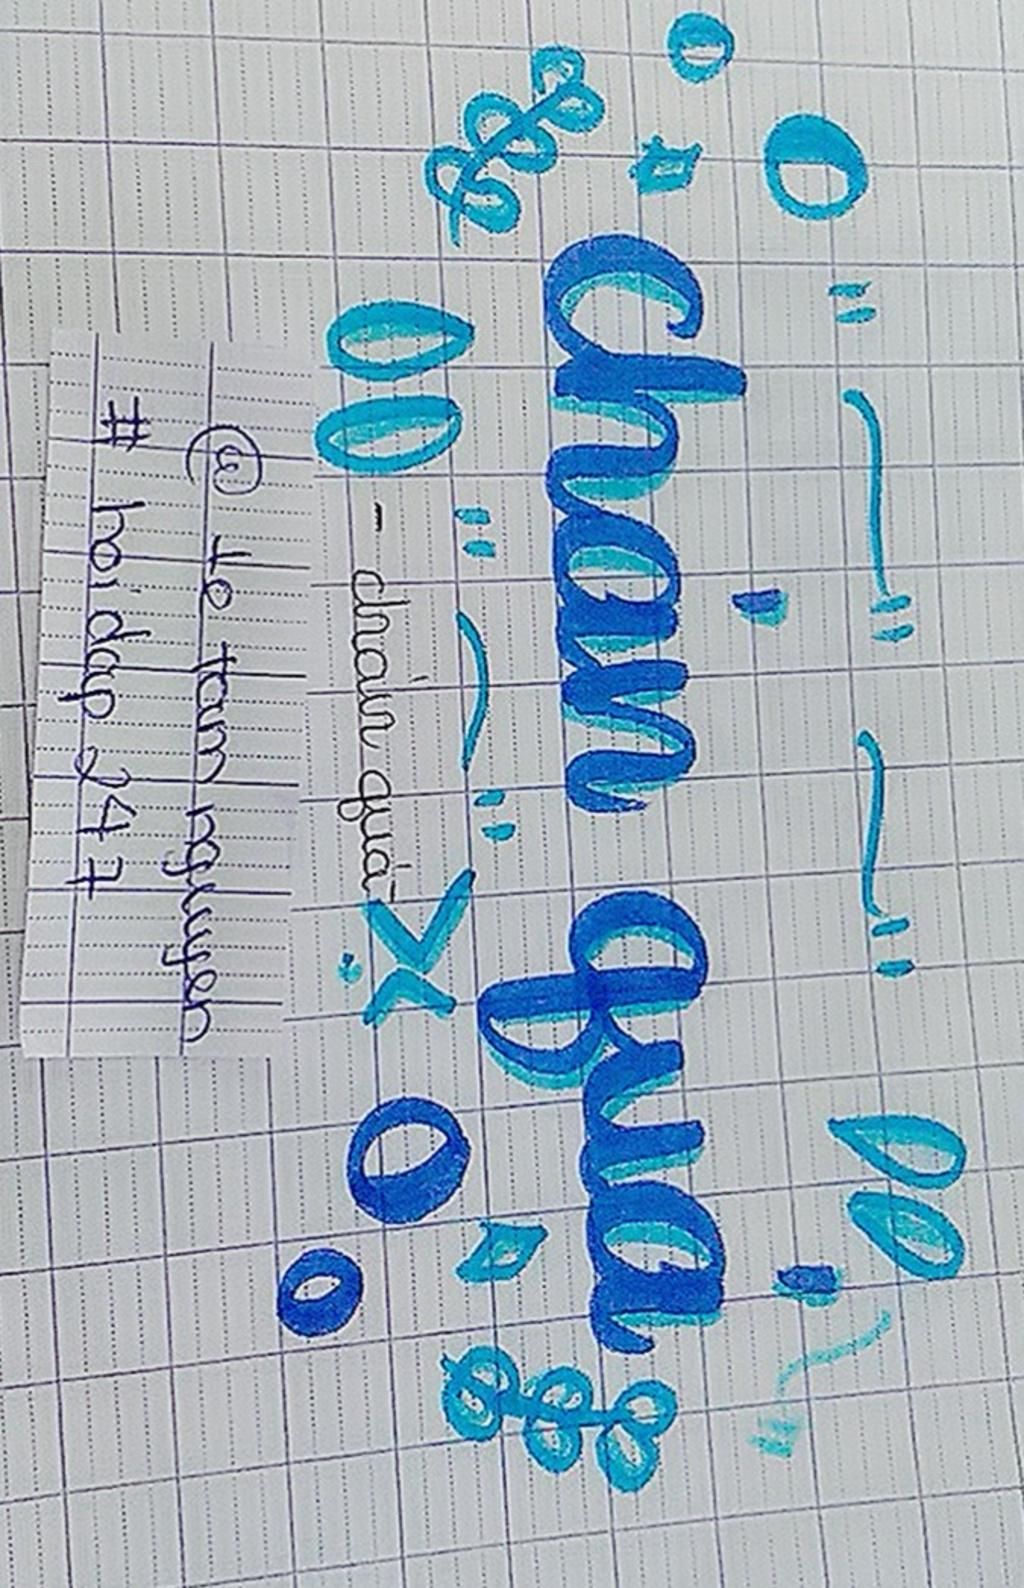 chán quá
- chán quá -
@ le tam nguyen
# hoidap 247